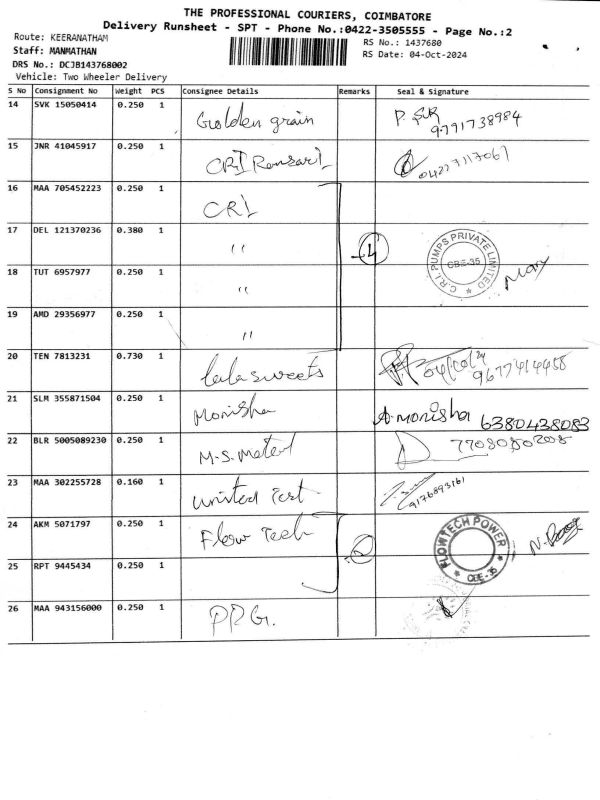 THE PROFESSIONAL COURIERS, COIMBATORE
Delivery Runsheet - SPT - Phone No.:0422-3505555 - Page No.:2
Route: KEERANATHAM
RS No.: 1437680
Staff: MANMATHAN
RS Date: 04-Oct-2024
DRS No.: DCJB143768002
Vehicle: Two Wheeler Delivery
S No Consignment No Weight PCS Consignee Details Remarks Seal & Signature
14 SVK 15050414 0.250 1 Golden grain 9791738984
15 JNR 41045917 0.250 1 CRI
16 MAA 705452223 0.250 1 CRI
17 DEL 121370236 0.380 1 " 4 C.R.I. PUMPS PRIVATE LIMITED CBE-35 Mary
18 TUT 6957977 0.250 1 "
19 AMD 29356977 0.250 1 "
20 TEN 7813231 0.730 1 lala sweets 9677414458
21 SLM 355871504 0.250 1 Monisha A.monisha 6380438083
22 BLR 5005089230 0.250 1 M.S. 7708080208
23 MAA 302255728 0.160 1 united Test 9176893161
24 AKM 5071797 0.250 1 Flow Tech 2 FLOWTECH POWER CBE-35
25 RPT 9445434 0.250 1
26 MAA 943156000 0.250 1 PPG.